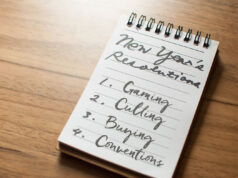 New Year's
Resolutions
1. Gaming
2. Culling
3. Buying
4. Conventions